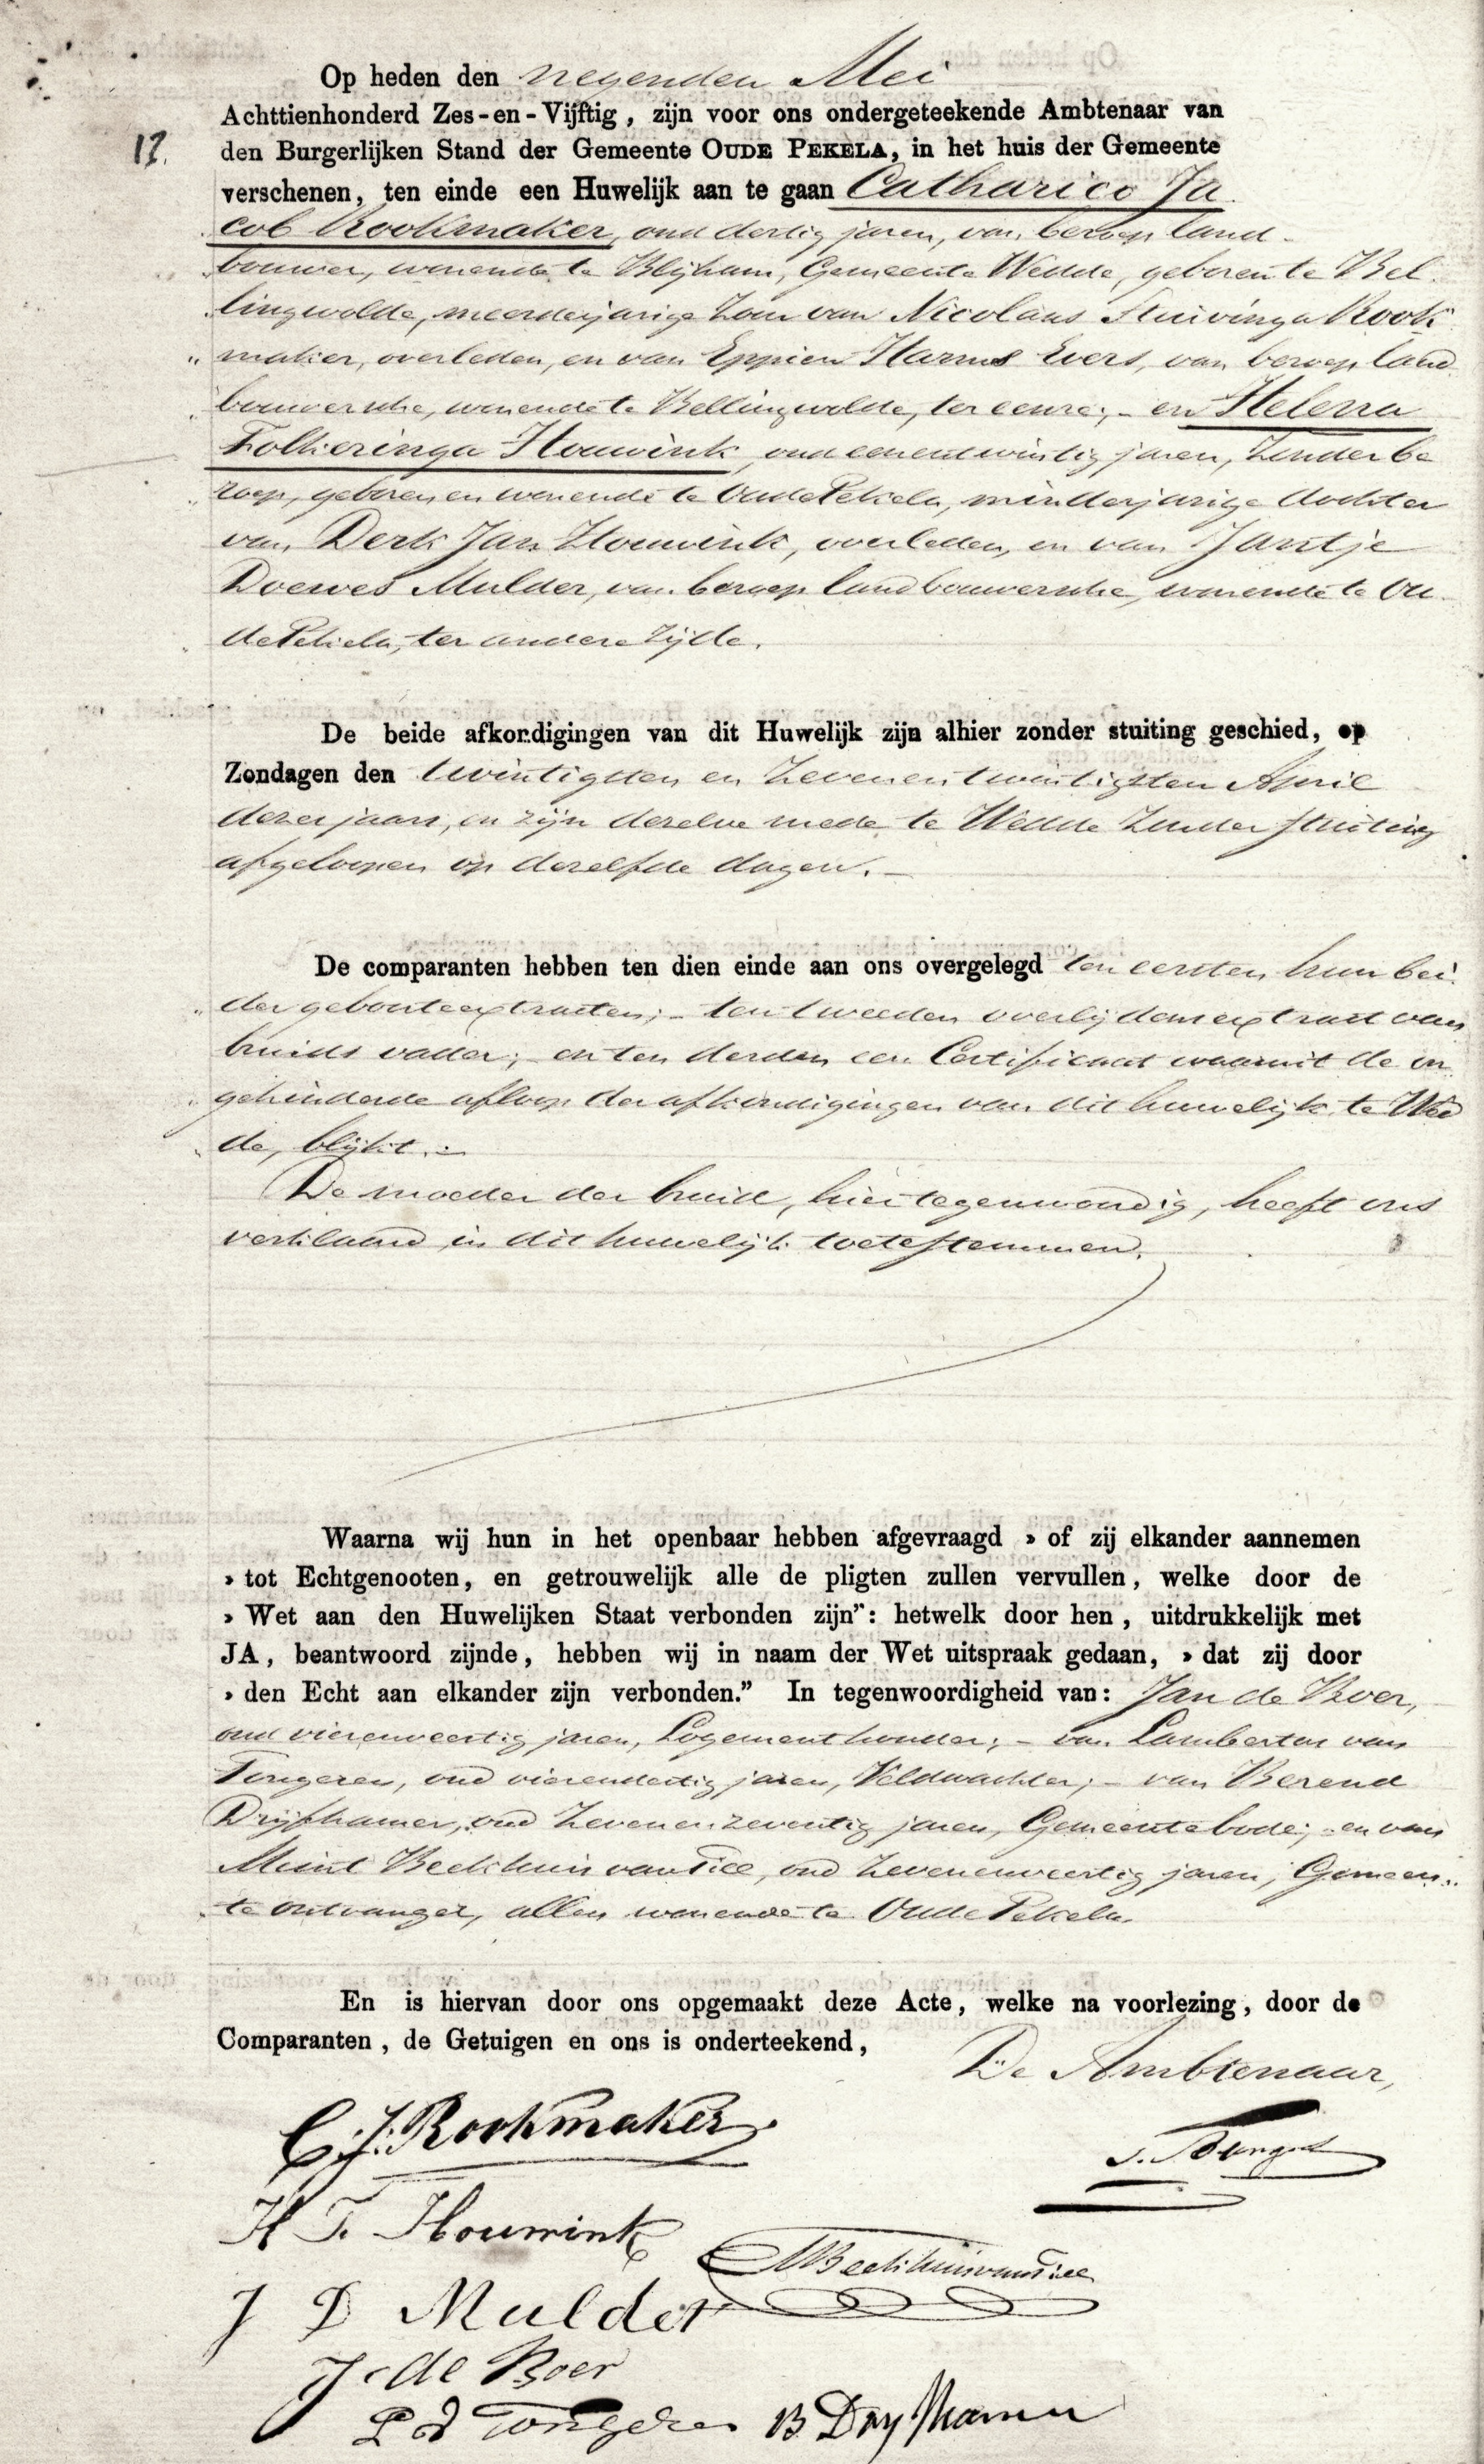 Op heden den negenden Mei
Achttienhonderd Zes-en-Vijftig, zijn voor ons ondergeteekende Ambtenaar van
17. den Burgerlijken Stand der Gemeente OUDE PEKELA, in het huis der Gemeente
verschenen, ten einde een Huwelijk aan te gaan Catharico Ja
cob Rookmaker, oud dertig jaren, van beroep land-
bouwer, wonende te Blijham, Gemeente Wedde, geboren te Bel
lingwolde, meerderjarige Zoon van Nicolaas Stuivinga Rook
maker, overleden, en van Eppien Harms Evers, van beroep land
bouwersche, wonende te Bellingwolde, ter eenre; - en Helena
Folkeringa Houwink, oud eenentwintig jaren, zonder be
roep, geboren en wonende te Oude Pekela, minderjarige dochter
van Derk Jan Houwink, overleden, en van Jantje
Doewes Mulder, van beroep landbouwersche, wonende te Ou
de Pekela, ter andere zijde.
De beide afkondigingen van dit Huwelijk zijn alhier zonder stuiting geschied, op
Zondagen den twintigsten en zevenentwintigsten April
dezer jaars, en zijn dezelve mede te Wedde zonder stuiting
afgeloopen op dezelfde dagen. -
De comparanten hebben ten dien einde aan ons overgelegd ten eersten hun bei
der geboorteextracten; - ten tweeden overlijdensextract van
bruids vader; en ten derden een Certificaat waaruit de on
gehinderde afloop der afkondigingen van dit huwelijk te Wed
de, blijkt. -
De moeder der bruid, hier tegenwoordig, heeft ons
verklaard in dit huwelijk toetestemmen.
Waarna wij hun in het openbaar hebben afgevraagd » of zij elkander aannemen
» tot Echtgenooten, en getrouwelijk alle de pligten zullen vervullen, welke door de
» Wet aan den Huwelijken Staat verbonden zijn”: hetwelk door hen, uitdrukkelijk met
JA, beantwoord zijnde, hebben wij in naam der Wet uitspraak gedaan, » dat zij door
» den Echt aan elkander zijn verbonden.” In tegenwoordigheid van: Jan de Boer,
oud vierenveertig jaren, Logementhouder; - van Lambertus van
Tongeren, oud vierendertig jaren, Veldwachter; - van Berend
Drijfhamer, oud zevenenzeventig jaren, Gemeentebode; - en van
Meint Beekhuis van Till, oud zevenenveertig jaren, Gemeen-
te ontvanger, allen wonende te Oude Pekela.
En is hiervan door ons opgemaakt deze Acte, welke na voorlezing, door de
Comparanten, de Getuigen en ons is onderteekend,
De Ambtenaar,
C. J. Rookmaker
H F. Houwink
MBeekhuisvanTill
J D Mulder
J. de Boer
L v Tongeren B Dryfhamer